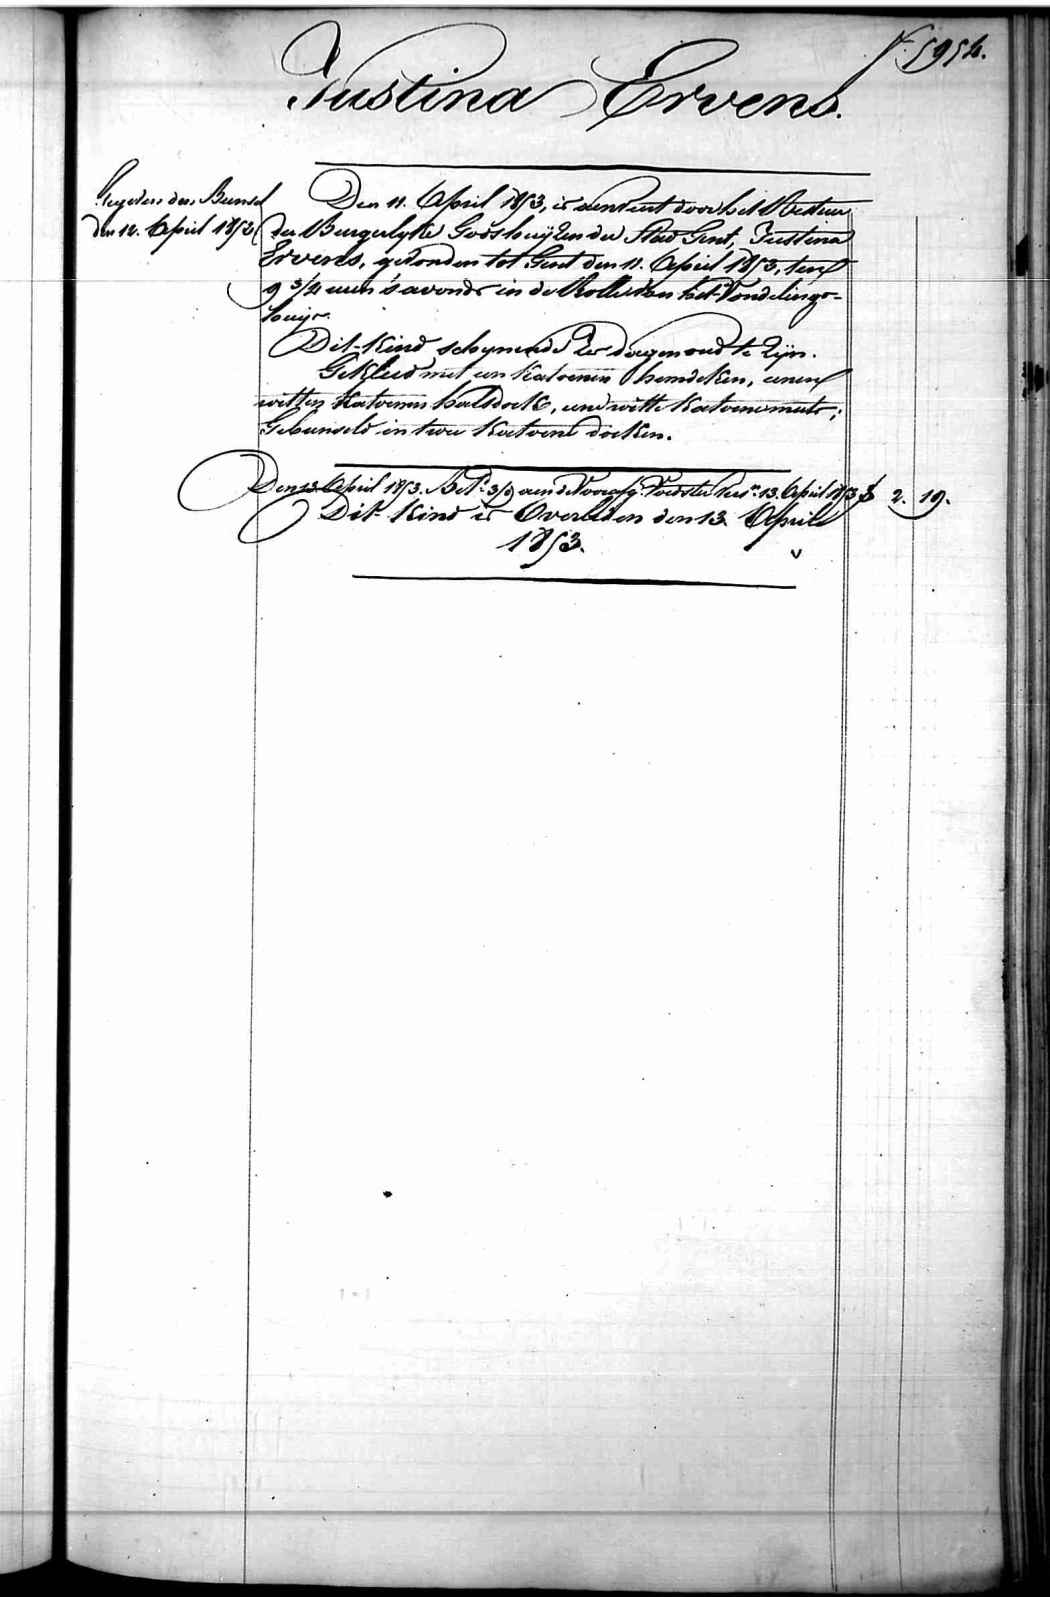 f.º 5954.
Justina Ervens.
Gegeven den Bunsel
den 12. April 1853
Den 11. April 1853, is aenveert door het Bestuer
der Burgerlyke Godshuyzen der Stad Gent, Justina
Ervens, gevonden tot Gent den 11. April 1853, ten
9 3/4 uren 's avonds in de Rolle van het Vondelings-
huys.
Dit Kind schynende een dag oud te zyn.
Gekleed met een katoenen hemdeken, eenen
witten katoenen halsdoek, eene witte katoene muts;
Gebunseld in twee katoene doeken.
Den 13 April 1853. Bet. 3/9 aen de Voorafg. Voedster 13. April 1853 f 2. 19.
Dit Kind is Overleden den 13. April
1853.